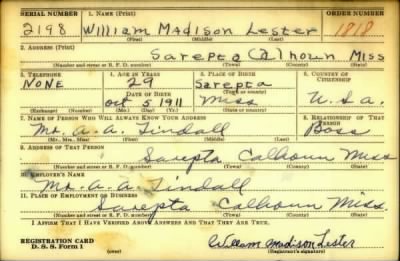 SERIAL NUMBER 1. NAME (Print) ORDER NUMBER
2198 William Madison Lester 1818
(First) (Middle) (Last)
2. ADDRESS (Print)
Sarepta Calhoun Miss
(Number and street or R. F. D. number) (Town) (County) (State)
3. TELEPHONE 4. AGE IN YEARS 5. PLACE OF BIRTH 6. COUNTRY OF CITIZENSHIP
NONE 29 Sarepta
DATE OF BIRTH (Town or county)
Oct 5 1911 Miss U.S.A.
(Exchange) (Number) (Mo.) (Day) (Yr.) (State or country)
7. NAME OF PERSON WHO WILL ALWAYS KNOW YOUR ADDRESS 8. RELATIONSHIP OF THAT PERSON
Mr. A. A. Tindall Boss
(Mr., Mrs., Miss) (First) (Middle) (Last)
9. ADDRESS OF THAT PERSON
Sarepta Calhoun Miss
(Number and street or R. F. D. number) (Town) (County) (State)
10. EMPLOYER'S NAME
Mr. A. A. Tindall
11. PLACE OF EMPLOYMENT OR BUSINESS
Sarepta Calhoun Miss.
(Number and street or R. F. D. number) (Town) (County) (State)
I AFFIRM THAT I HAVE VERIFIED ABOVE ANSWERS AND THAT THEY ARE TRUE.
REGISTRATION CARD
D. S. S. Form 1 (over) William Madison Lester
(Registrant's signature)